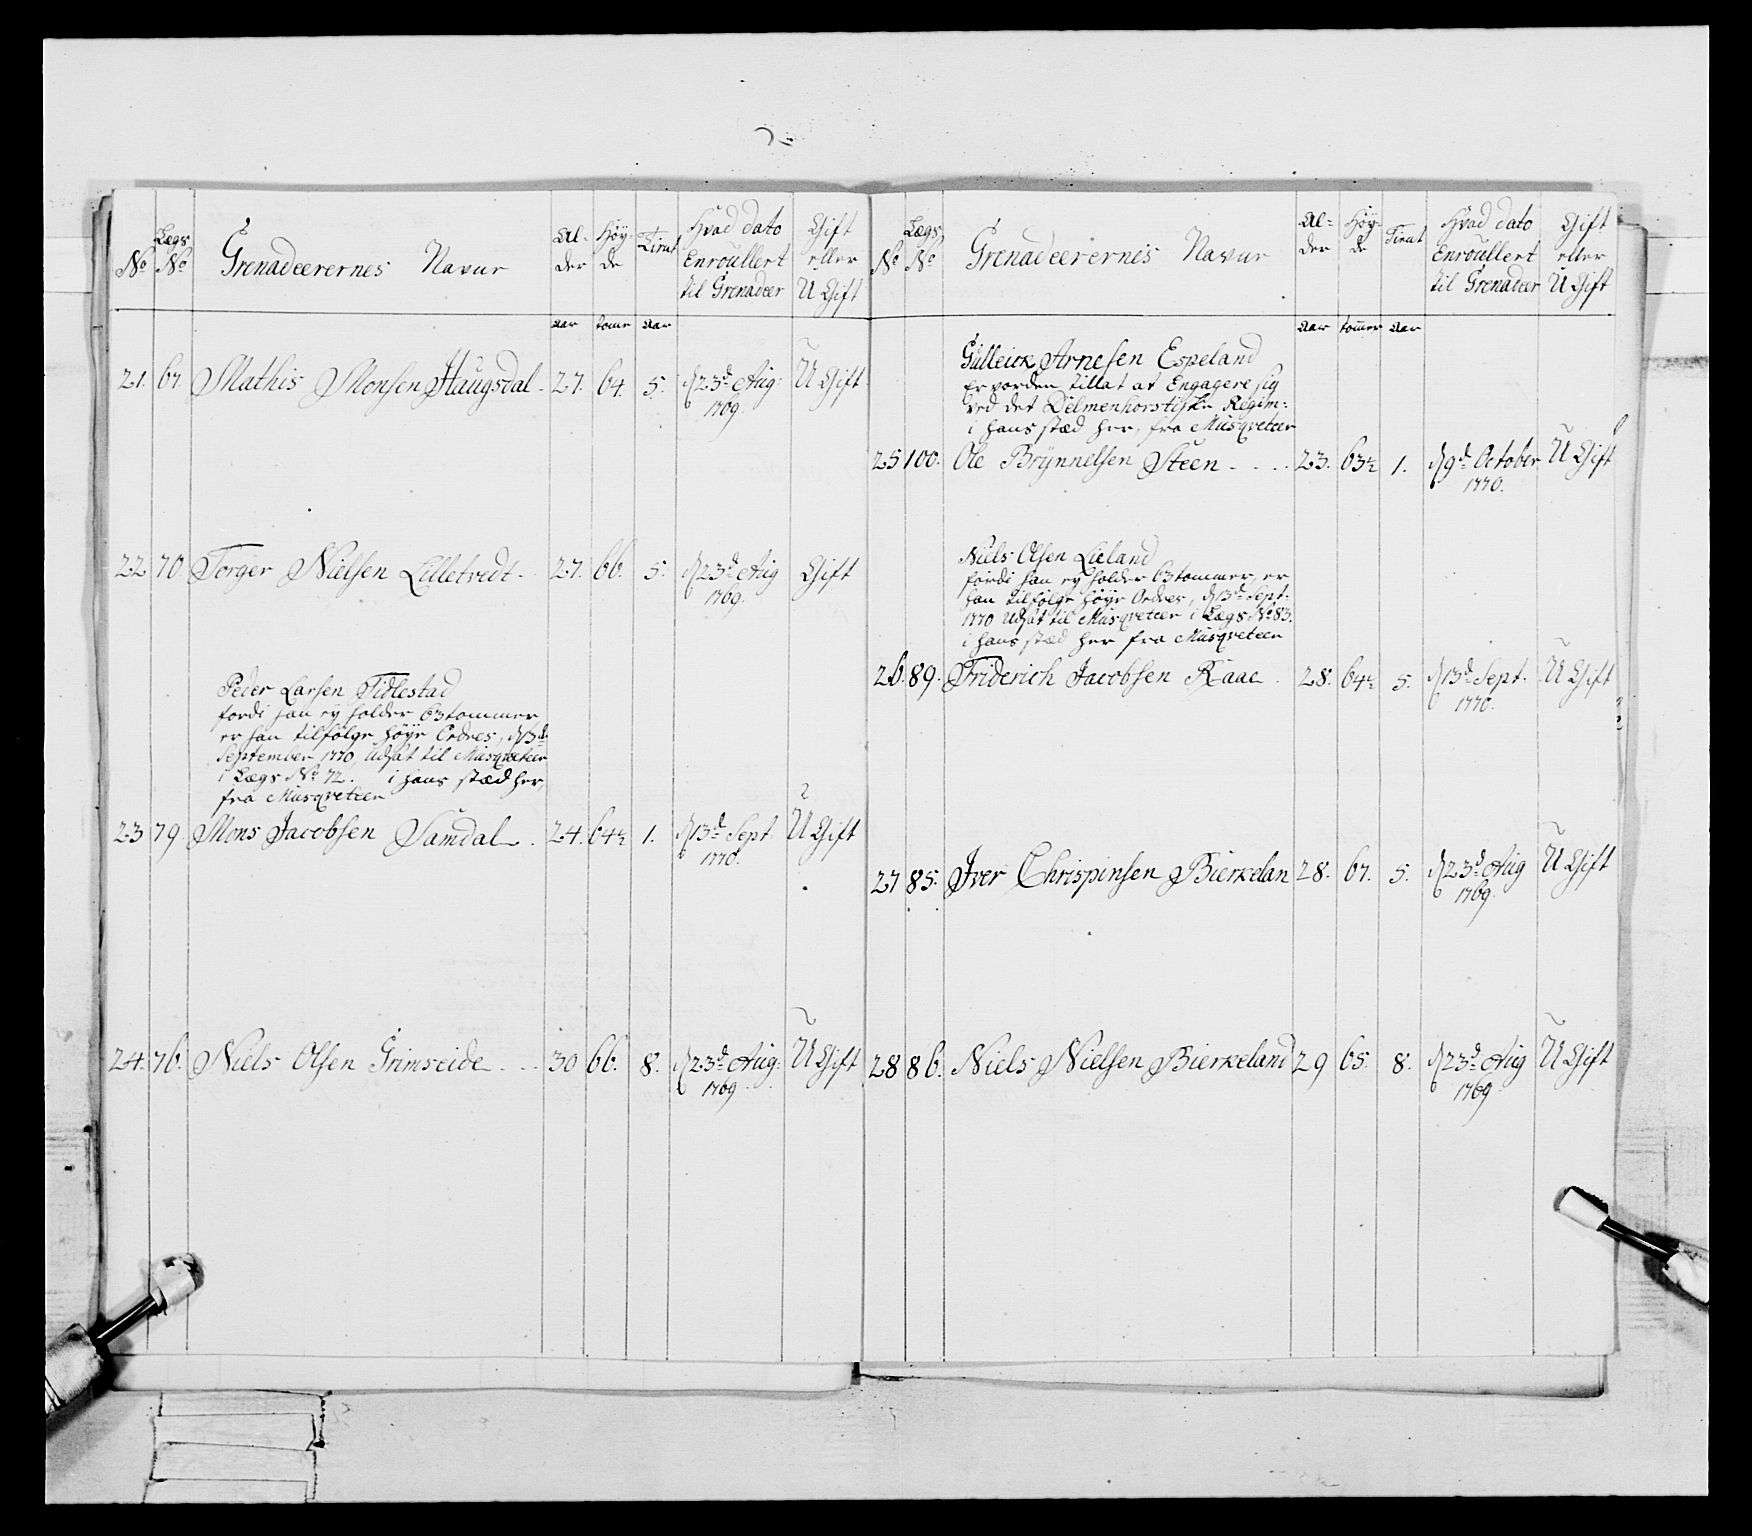 No Lægs No Grenadeerernes Navne Al-der Høy-de Tient Hvad dato Enroullert til Grenadeer Gift eller U Gift
Aar tome Aar
21. 67. Mathis Monsen Haugsdal. 27. 64. 5. d 23d Aug: 1769. U Gift
22 70. Torger Nielsen Lilletvedt. 27. 66. 5. d 23d Aug 1769. Gift
Peder Larsen Tidlestad
fordi han ey holder 63 tommer
er han tilfølge høye Ordres, d 13d
September 1770, Udsat til Musqveteer
i Lægs No 72. i hans stæd her,
fra Musqveteer
23 79. Mons Jacobsen Samdal. 24. 64½ 1. d 13d Sept. 1770. U Gift
24. 76. Niels Olsen Grimseide 30 66. 8. d 23d Aug: 1769 U Gift
No Lægs No Grenadeerernes Navne Al-der Høy-de Tient Hvad dato Enroullert til Grenadeer Gift eller U Gift
Aar tommer Aar
Gulleick Arnesen Espeland
er vorden tillat at Engagere sig
ved det Delmenhorstiske Regim:
i hans stæd her, fra Musqveteer
25 100. Ole Brynnelsen Steen 23. 63½ 1. d 9d October 1770. U Gift
Niels Olsen Lieland
fordi han ey holder 63 tommer, er
han tilfølge høye Ordres, d 13d Sept:
1770 Udsat til Musqveteer i Lægs No 83.
i hans stæd her fra Musqveteer
26. 89. Friderich Jacobsen Kaae. 28. 64½ 5. d 13d Sept. 1770. U Gift
27 85. Iver Chrispinsen Bierkelan 28. 67. 5. d 23d Aug 1769. U Gift
28 86. Niels Nielsen Bierkeland 29 65. 8. d 23d Aug 1769 U Gift